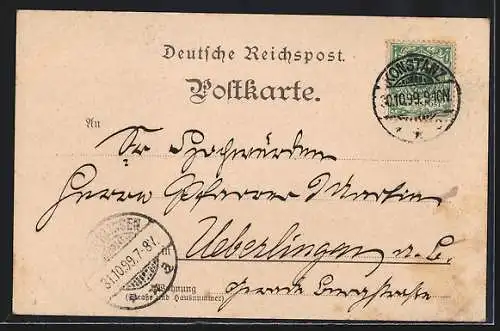 Deutsche Reichspost.
Postkarte.
KONSTANZ
30.10.99.9-10N.
An
Sr Hochwürden
Herrn Pfarrer Martin
Ueberlingen a. L.
31.10.99.7-8V.
in
Wohnung
(Straße und Hausnummer)